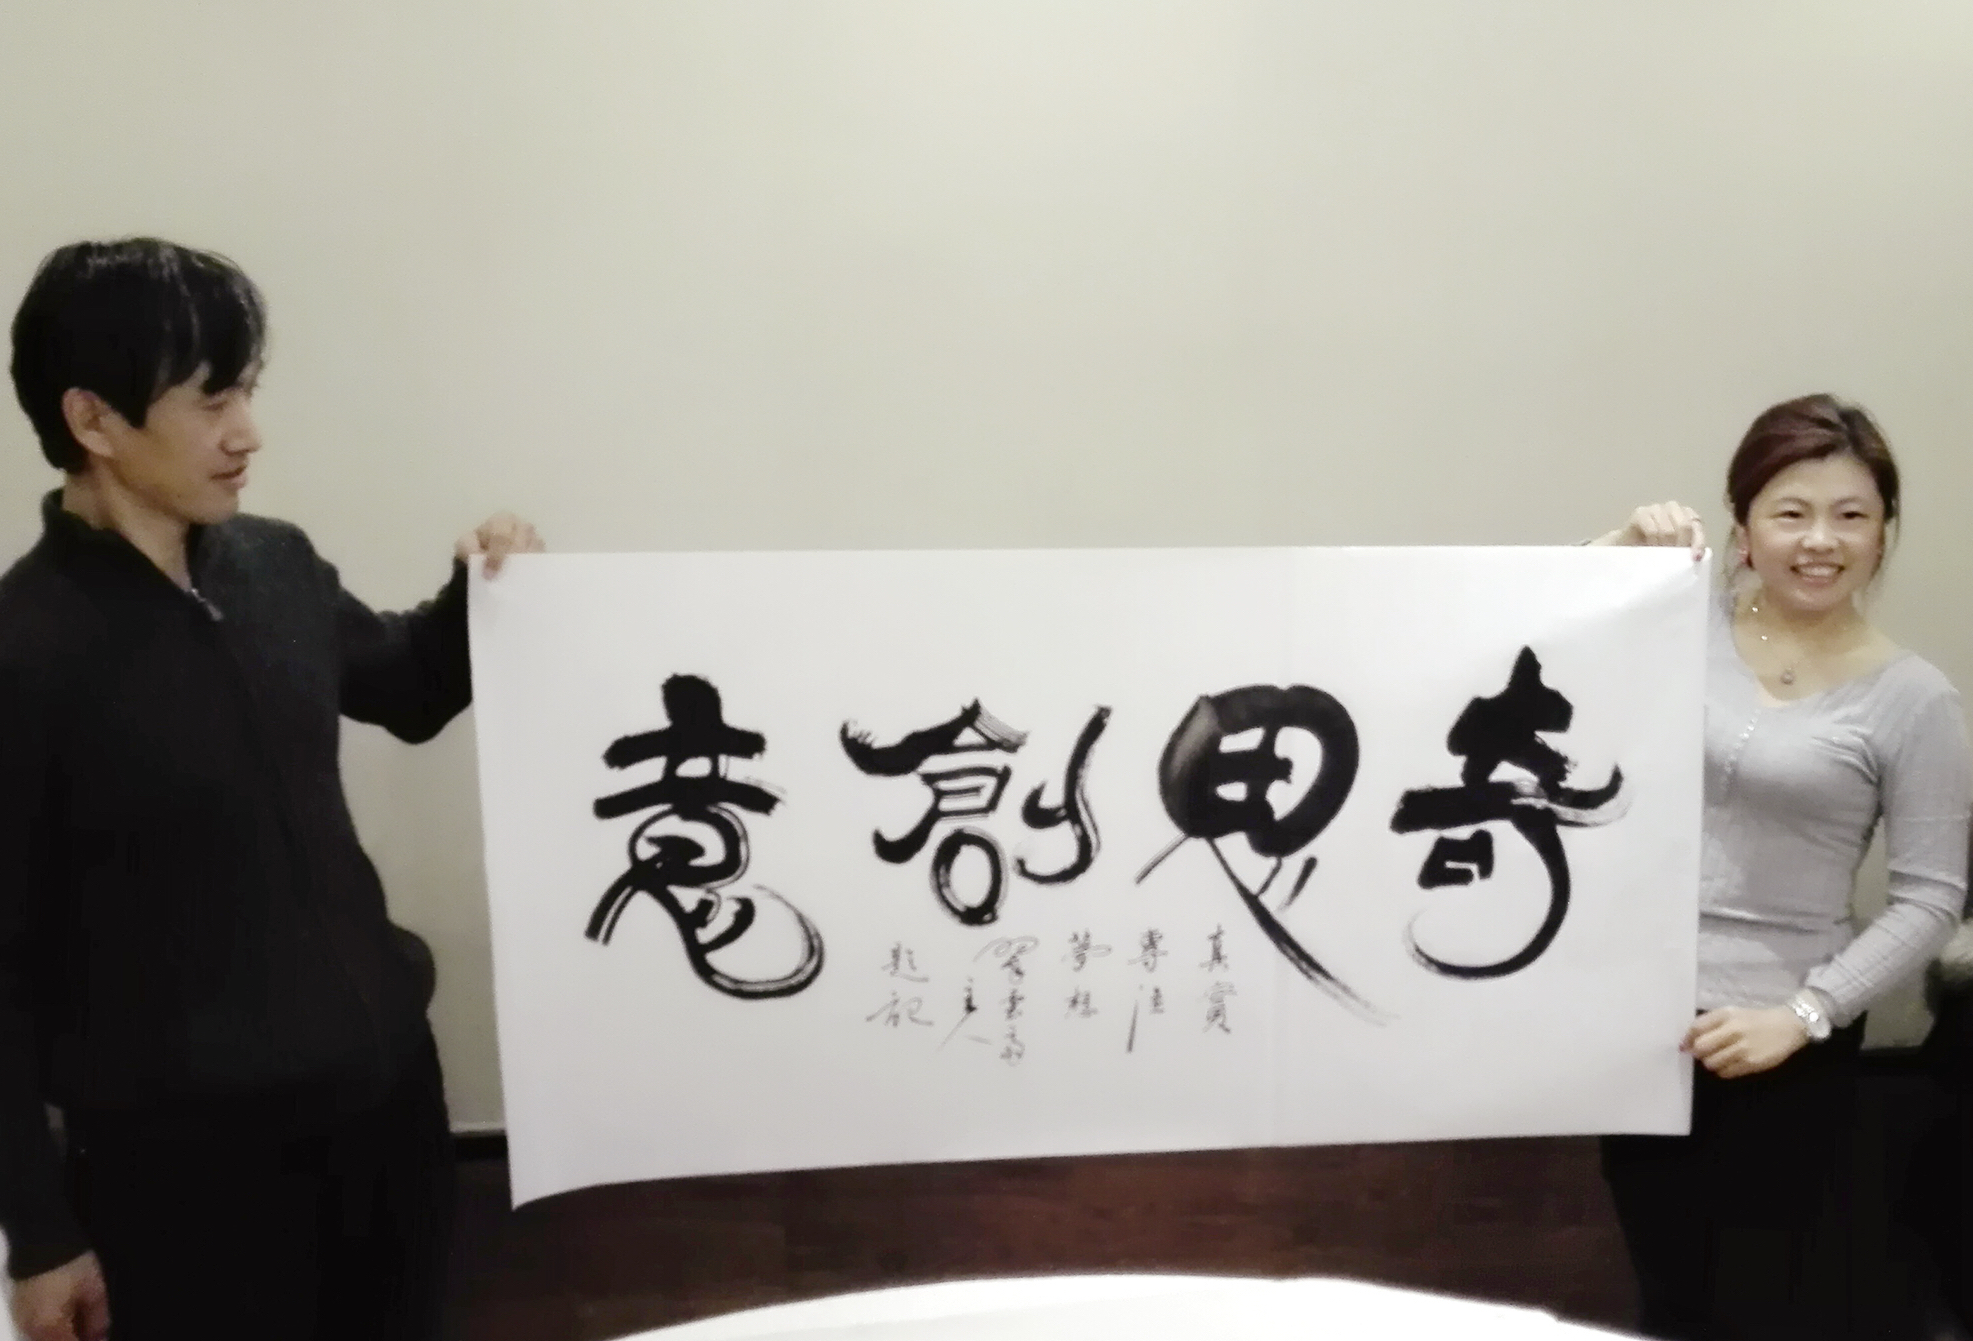 奇思創意
真實
專注
夢想
題記